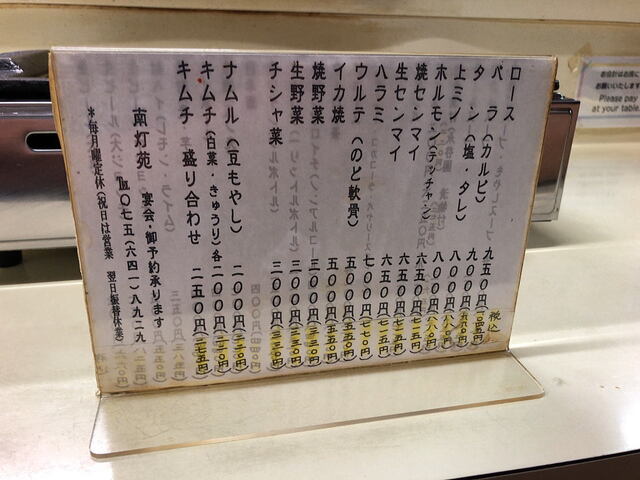 税込
ロース 九五〇円(一〇四五円)
バラ(カルビ) 九〇〇円(九九〇円)
タン(塩・タレ) 八〇〇円(八八〇円)
上ミノ 八〇〇円(八八〇円)
ホルモン(テッチャン) 六五〇円(七一五円)
焼センマイ 六五〇円(七一五円)
生センマイ 六五〇円(七一五円)
ハラミ 七〇〇円(七七〇円)
ウルテ(のど軟骨) 五〇〇円(五五〇円)
イカ焼 五〇〇円(五五〇円)
焼野菜 三〇〇円(三三〇円)
生野菜 三〇〇円(三三〇円)
チシャ菜 三〇〇円(三三〇円)
ナムル(豆もやし) 二〇〇円(二二〇円)
キムチ(白菜・きゅうり)各 二〇〇円(二二〇円)
キムチ盛り合わせ 二五〇円(二七五円)
宴会・御予約承ります
南灯苑 ℡〇七五(六四一)八九二九
*毎月曜定休(祝日は営業 翌日振替休業)
お会計はお席に
お願いいたします
Please pay
at your table.